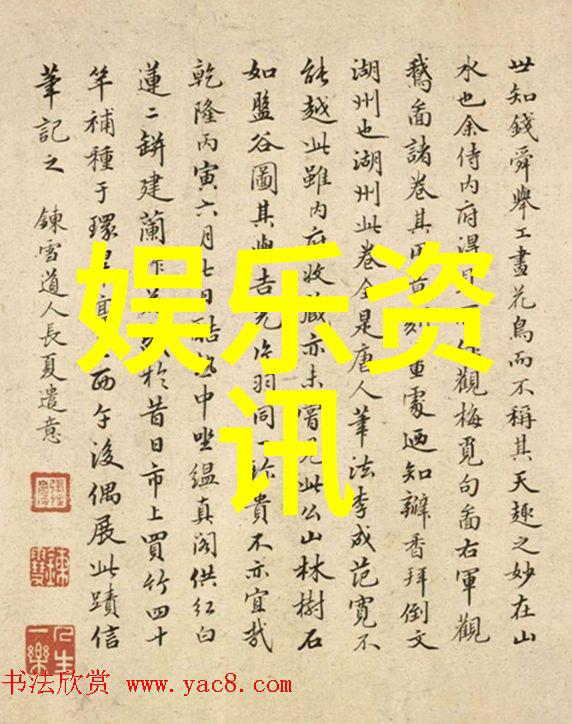 世知錢舜舉工畫花鳥而不稱其天趣之妙在山
水也余侍内府得見觀梅覓句畵右軍觀
鵝畵諸卷其用重處迺知瓣香拜倒文
湖州也湖州此卷全是唐人筆法李成范寬不
能越此雖内府收藏亦未嘗見此公山林樹石
如盤谷圖其與吉光片羽同一珍貴不亦宜哉
乾隆丙寅六月七月酷熱中坐緼真閣供红白
蓮二缾建蘭於昔日市上買竹四十
竿補種于環西午後偶展此蹟信
筆記之 鍊雪道人長夏遣意
人生一樂
娱乐资
讯
书法欣赏 www.yac8.com